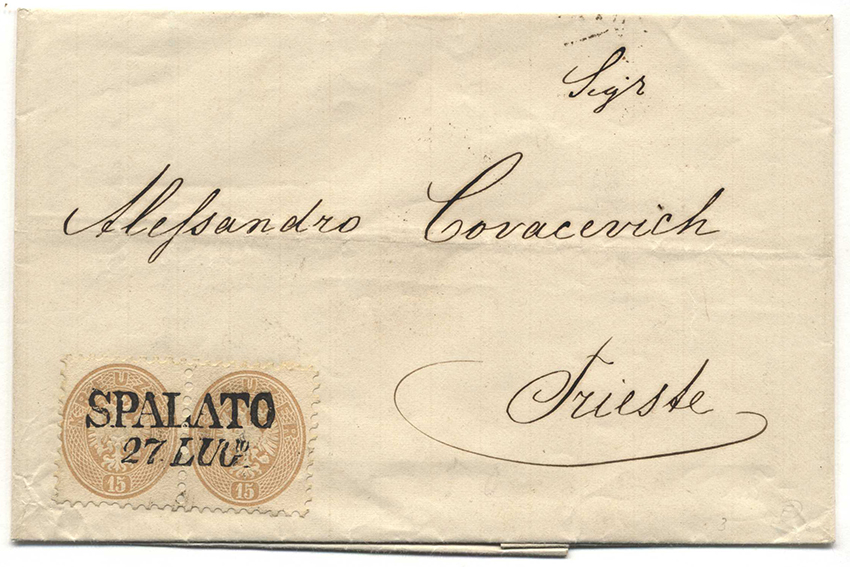 Sigr
Alessandro Covacevich
Trieste
SPALATO
27 LUGo.
15 15